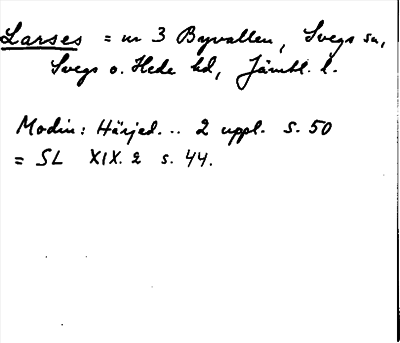 Larses = nr 3 Byvallen, Svegs sn,
Svegs o. Hede hd, Jämtl. l.
Modin: Härjed... 2 uppl. s. 50
= SL XIX. 2 s. 44.